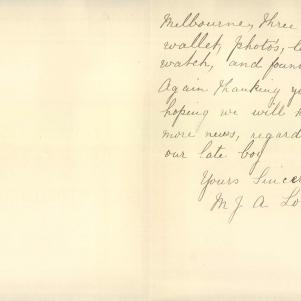 Melbourne, three
wallet, photo's,
watch, and foun
Again thanking yo
hoping we will h
more news, regard
our late boy
Yours Sincer
M J A Lo